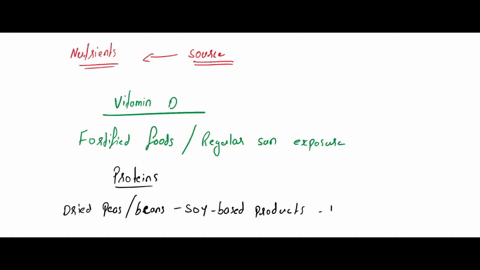 Nutrients ← source
Vitamin D
Fortified foods / Regular sun exposure
Proteins
Dried Peas/beans - SOY-based products -